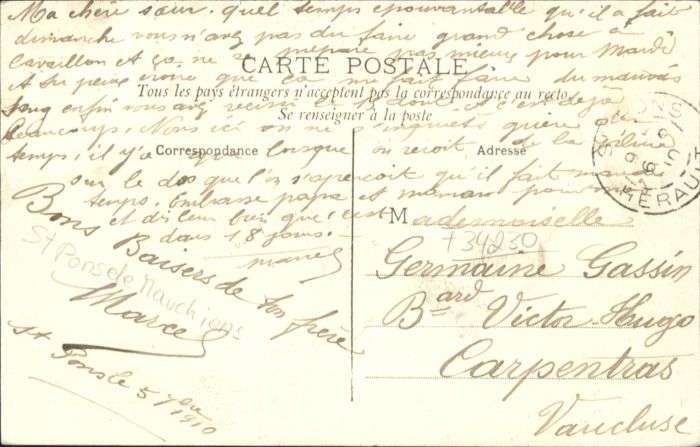 Ma chère sœur. quel temps épouvantable qu'il a fait
dimanche vous n'avez pas du faire grand chose à
Cavaillon et ça ne se prépare pas mieux pour Mardi
CARTE POSTALE
et tu peux croire que ça me fait faire du mauvais
Tous les pays étrangers n'acceptent pas la correspondance au recto
sang enfin vous avez et c'est déjà
Se renseigner à la poste
beaucoup. Nous ici on ne s'inquiète guère du
temps, il y a que lorsque on reçoit de la
Correspondance
Adresse
sur le dos que l'on s'aperçoit qu'il fait mauvais
temps. Embrasse papa et maman pour moi
et dis leur bien que c'est
dans 18 jours.
Bons Baisers de ton frère
Marcel
St Pons de Mauchiens
St Pons le 5 1910
HERAULT
Mademoiselle
+34230
Germaine Gassin
Bard Victor-Hugo
Carpentras
Vaucluse